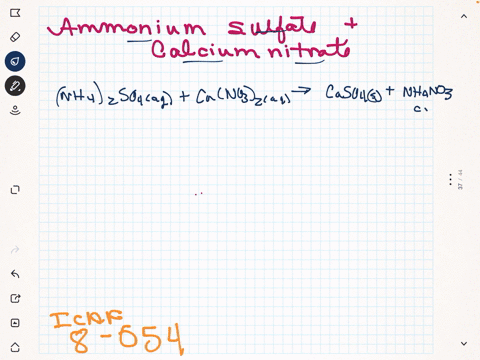 Ammonium sulfate +
Calcium nitrate
(NH4)2SO4(aq) + Ca(NO3)2(aq) → CaSO4(s) + NH4NO3
ICAF
8-054
37/